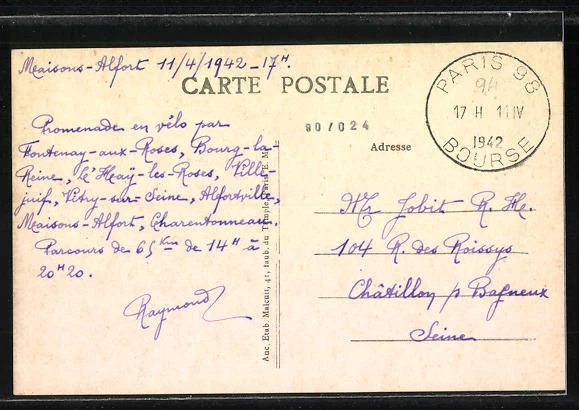 Maisons-Alfort 11/4/1942 - 17H.
CARTE POSTALE
Promenade en vélo par
Fontenay-aux-Roses, Bourg-la-
Reine, l'Haÿ-les-Roses, Ville-
juif, Vitry-sur-Seine, Alfortville,
Maisons-Alfort, Charentonneau.
Parcours de 65 Km de 14H à
20H20.
Raymond
Anc. Etab. Malcuit, 41, faub. du Temple, Paris. E. M.
907024
PARIS 98
17 H 11 IV
1942
BOURSE
Adresse
Mr Jobit R. M.
104 R. des Roissys
Châtillon p Bagneux
Seine